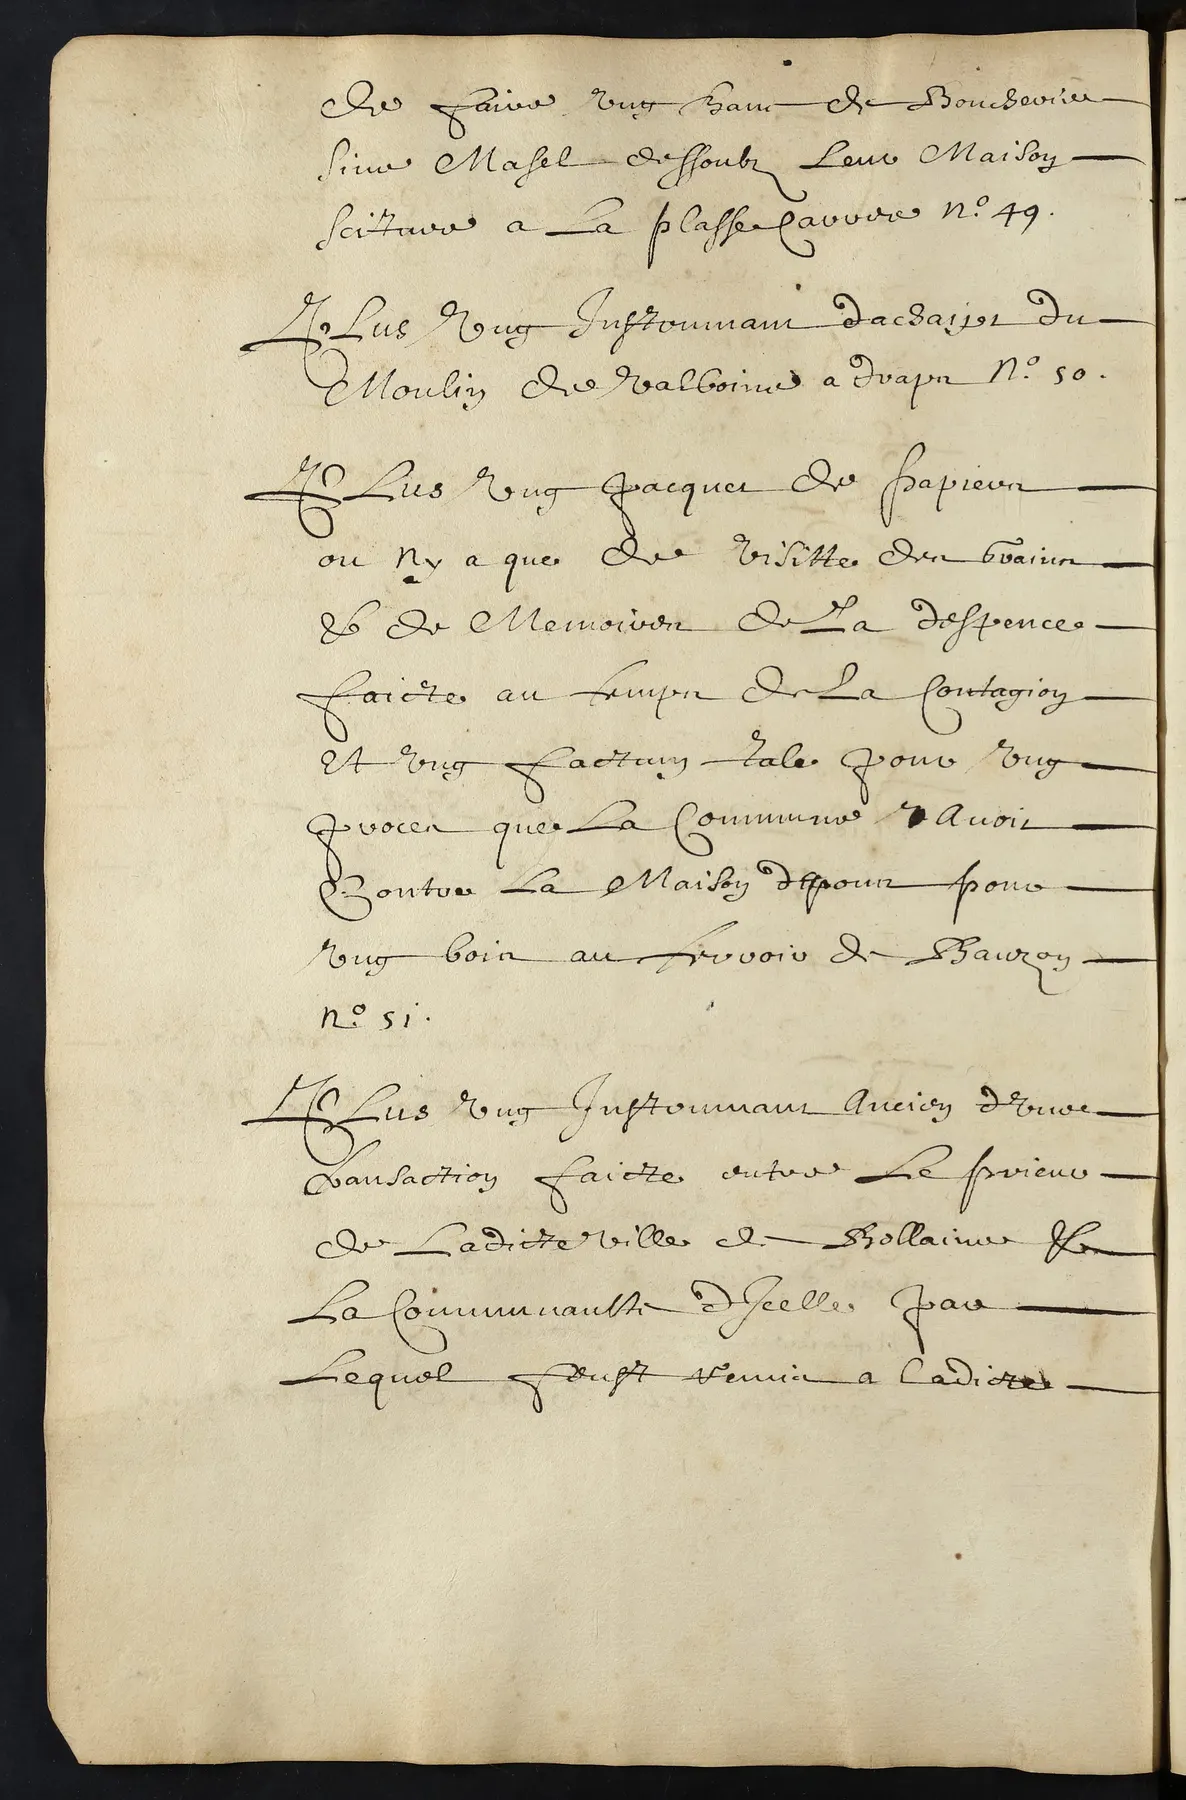 de faire ung banc de Boucherie
sive Masel dessoubz Leur Maison
scituee a La plasse Carree N.º 49.
PLus Vng Instrumant dachaipt du
Moulin de Valboine a draps N.º 50.
PLus Vng pacquet de papiers
ou Ny a que de visitte des grains
& de Memoires de La despence
faicte au temps de La Contagion
et Vng factum tale pour Vng
proces que La Commune Avoit
Contre La Maison pour
Vng bois au terroir de Bauzon
N.º 51.
PLus Vng Instrumant Ancien dVne
transaction faicte entre Le prieur
de Ladicte ville de Bollaine &
La Communaulte dIcelle par
Lequel feust remis a Ladicte